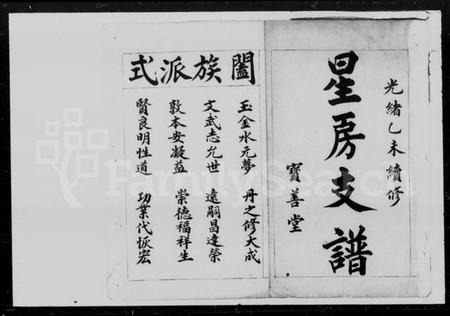 光緒乙未續修
星房支譜
寶善堂
闔族派式
玉金水元夢 丹之修大成
文武志允世 遠嗣昌達榮
敦本安凝益 崇德福祥生
賢良明性道 功業代恢宏
FamilySearch